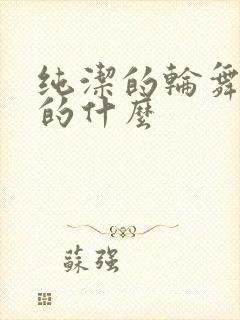 純潔的輪舞
的什麼
蘇強